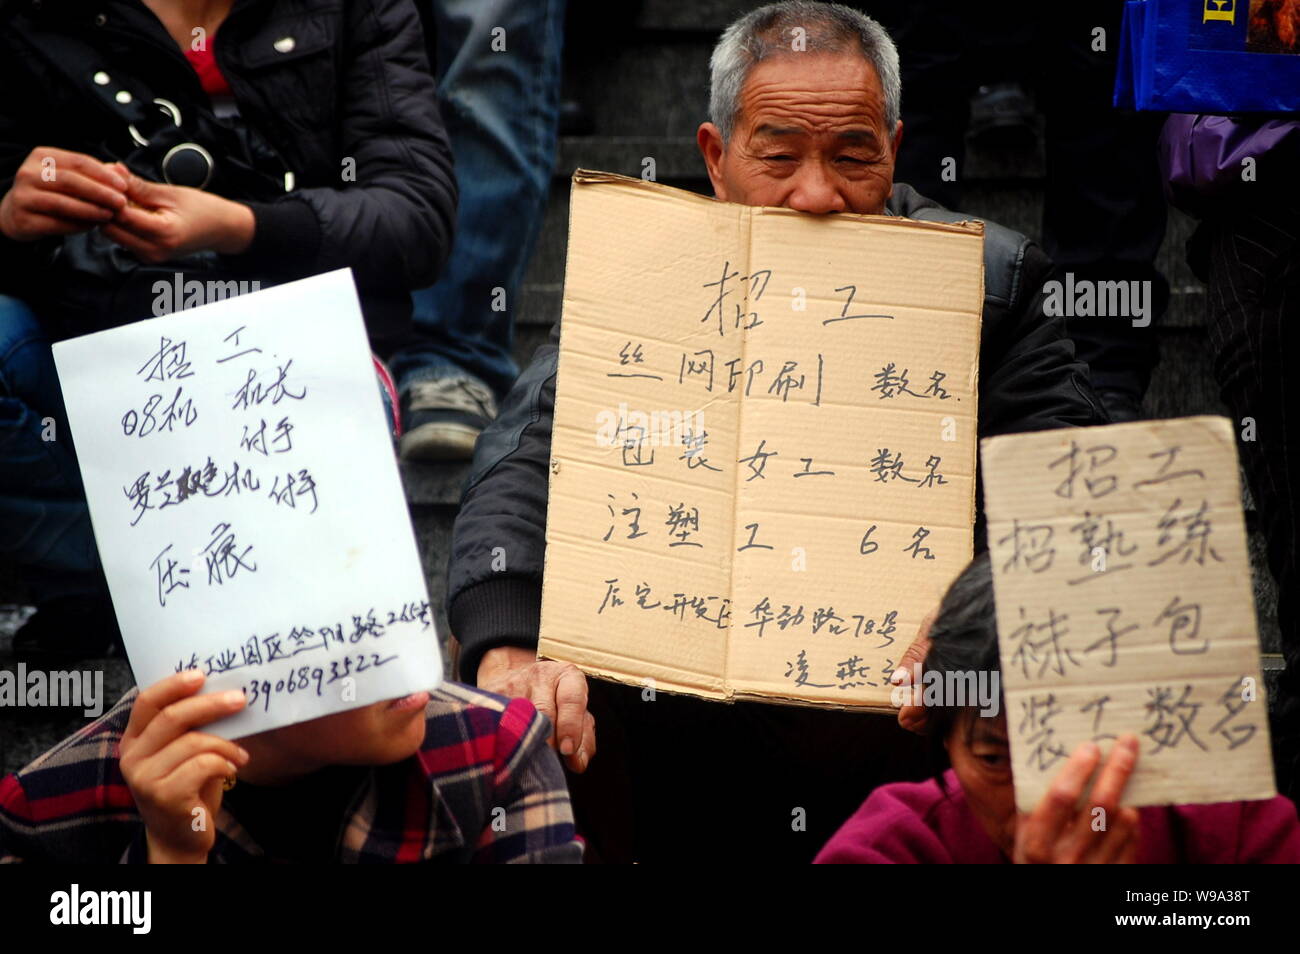 招 工
08机 机长
付手
罗兰 机 付手
压痕
工业园区 路265号
13906893522
招 工
丝网印刷 数名.
包装女工 数名
注塑工 6名
后宅开发区华劲路78号
凌燕文
招 工
招熟练
袜子包
装工数名
E
alamy
Image ID: W9A38T
www.alamy.com